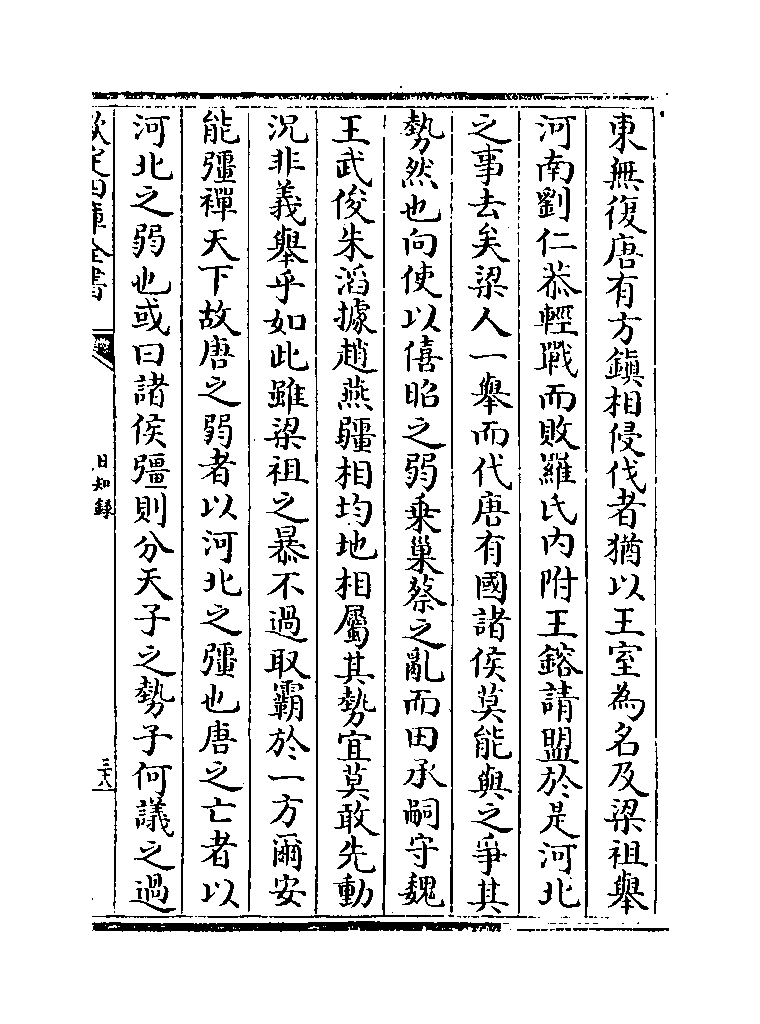 東無復唐有方鎮相侵伐者猶以王室為名及梁祖舉
河南劉仁恭輕戰而敗羅氏内附王鎔請盟於是河北
之事去矣梁人一舉而代唐有國諸侯莫能與之爭其
勢然也向使以僖昭之弱乗巢蔡之亂而田承嗣守魏
王武俊朱滔據趙燕疆相均地相屬其勢宜莫敢先動
況非義舉乎如此雖梁祖之暴不過取霸於一方爾安
能彊禪天下故唐之弱者以河北之彊也唐之亡者以
河北之弱也或曰諸侯彊則分天子之勢子何議之過
欽定四庫全書
日知録
三六